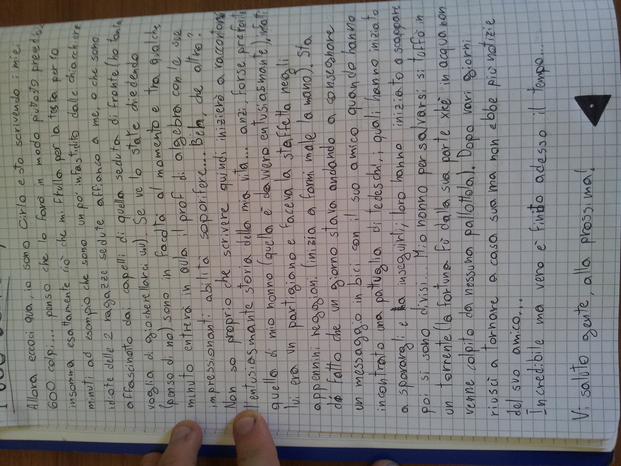 600 COL
Allora eccoci qua, io sono Cirlo e sto scrivendo i miei
600 colpi... penso che lo farò in modo piuttosto
insomma esattamente ciò che mi frulla per la testa per 10
minuti, ad esempio che sono un po' infastidito dalle chiacchiere
idiote delle 2 ragazze sedute affianco a me o che sono
affascinato dai capelli di quella seduta di fronte (ho tanta
voglia di giocherellarci uv) Se ve lo state chiedendo
(penso di no) sono in facoltà al momento e tra qualche
minuto entrerà in aula il prof di algebra con le sue
impressionanti abilità soporifere.... Beh, che altro?
Non so proprio che scrivere quindi inizierò a raccontarvi
l'entusiasmante storia della mia vita... anzi forse preferite
quella di mio nonno (quella è davvero entusiasmante), infatti
lui era un partigiano e faceva la staffetta negli
appennini reggiani (inizia a farmi male la mano). Sta
di fatto che un giorno stava andando a consegnare
un messaggio in bici con il suo amico quando hanno
incontrato una pattuglia di tedeschi, i quali hanno iniziato
a sparargli e a inseguirli, loro hanno iniziato a scappare
poi si sono divisi... Mio nonno per salvarsi si tuffò in
un torrente (la fortuna fu dalla sua parte xké in acqua non
venne colpito da nessuna pallottola). Dopo vari giorni
riuscì a tornare a casa sua ma non ebbe più notizie
del suo amico...
Incredibile ma vero è finito adesso il tempo...
Vi saluto gente, alla prossima!